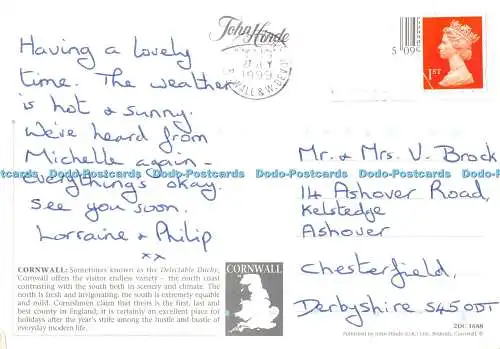 John Hinde
1999
CORNWALL & W. DEVON
5 09
1ST
Having a lovely
time. The weather
is hot & sunny.
We've heard from
Michelle again -
everythings okay.
See you soon.
Lorraine & Philip
xx
Mr. & Mrs. V. Brock
14 Ashover Road,
Kelstedge
Ashover
Chesterfield,
Derbyshire S45 0DT
Dodo-Postcards Dodo-Postcards Dodo-Postcards Dodo-Postcards Dodo-Postcards
CORNWALL: Sometimes known as the Delectable Duchy,
Cornwall offers the visitor endless variety – the north coast
contrasting with the south both in scenery and climate. The
north is fresh and invigorating, the south is extremely equable
and mild. Cornishmen claim that theirs is the first, last and
best county in England; it is certainly an excellent place for
holidays after the year's strife among the hustle and bustle of
everyday modern life.
CORNWALL
2DC 1688
Published by John Hinde (U.K.) Ltd., Redruth, Cornwall. ©